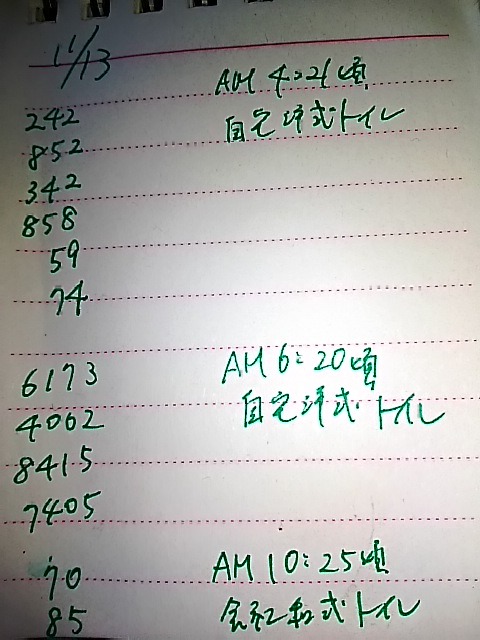 11/13
AM 4:21頃
242
自宅洋式トイレ
852
342
858
59
74
6173
AM 6:20頃
4062
自宅洋式トイレ
8415
7405
70
AM 10:25頃
85
和式トイレ